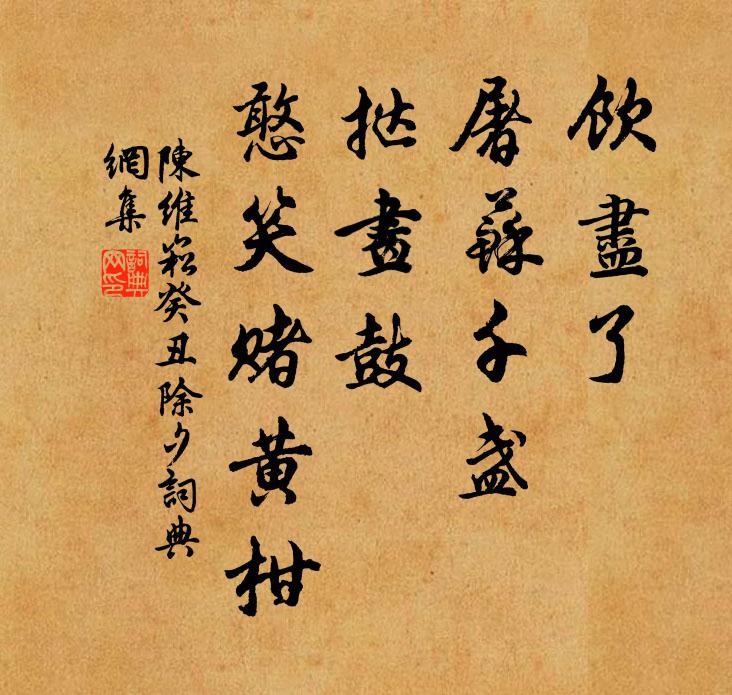 飲盡了
屠蘇千盞
挝畫鼓
憨笑赌黄柑
陳維崧癸丑除夕詞典
網集
詞典
网印